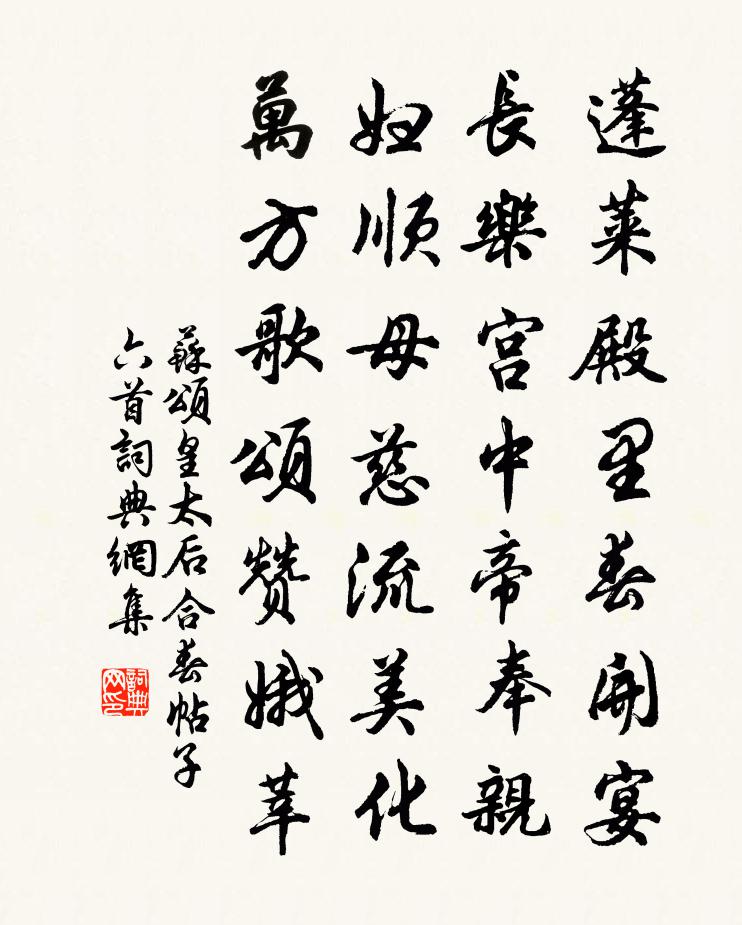 蓬萊殿里春開宴
長樂宮中帝奉親
婦順母慈流美化
萬方歌頌贊娥莘
蘇頌皇太后合春帖子
六首詞典網集
詞典網印